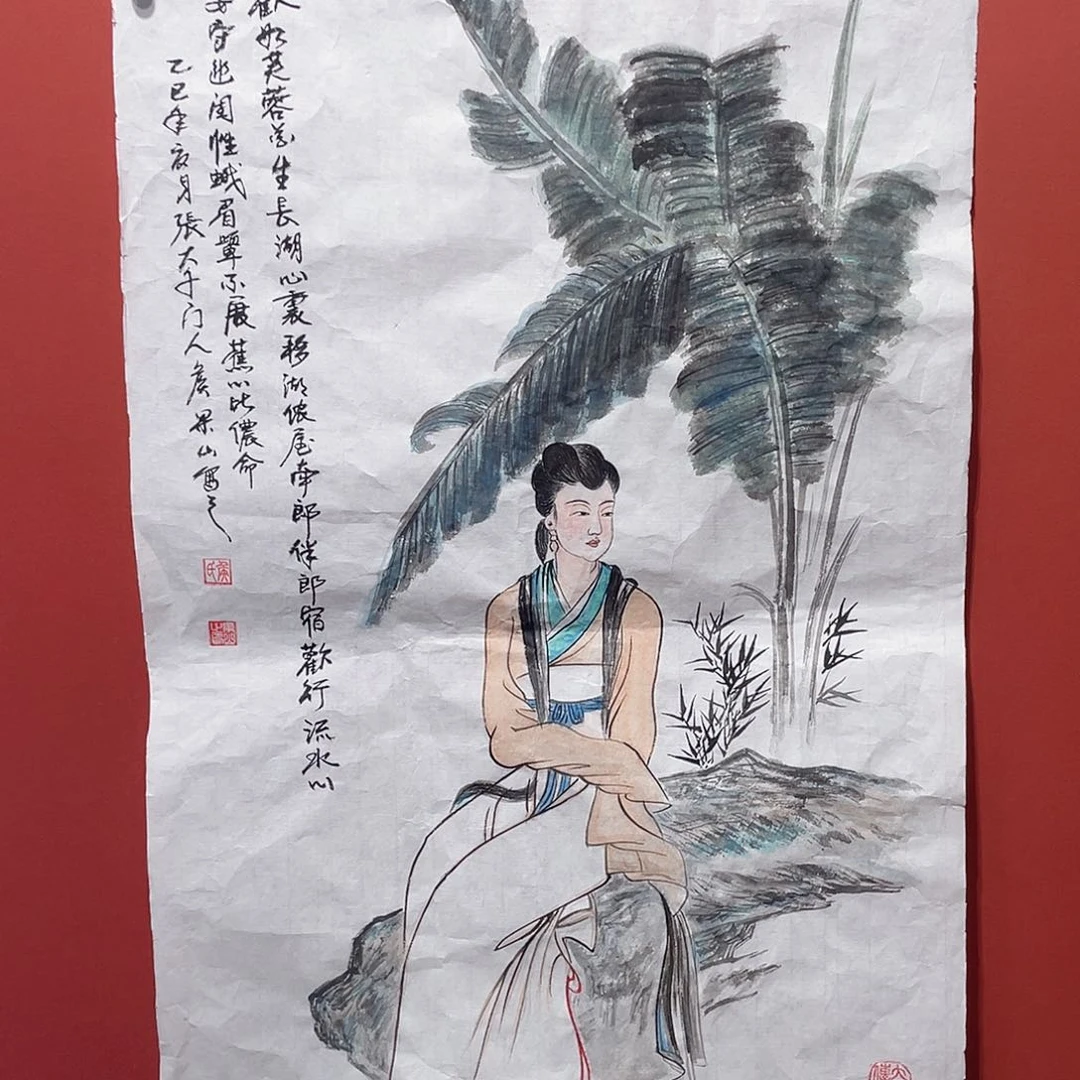 歡如芙蓉花生長湖心裏移湖侬屋牵郎伴郎宿歡行流水心
妾守幽閨性蛾眉顰不展蕉心比儂命
乙巳年夏月張大千门人侯果山寫之
侯氏